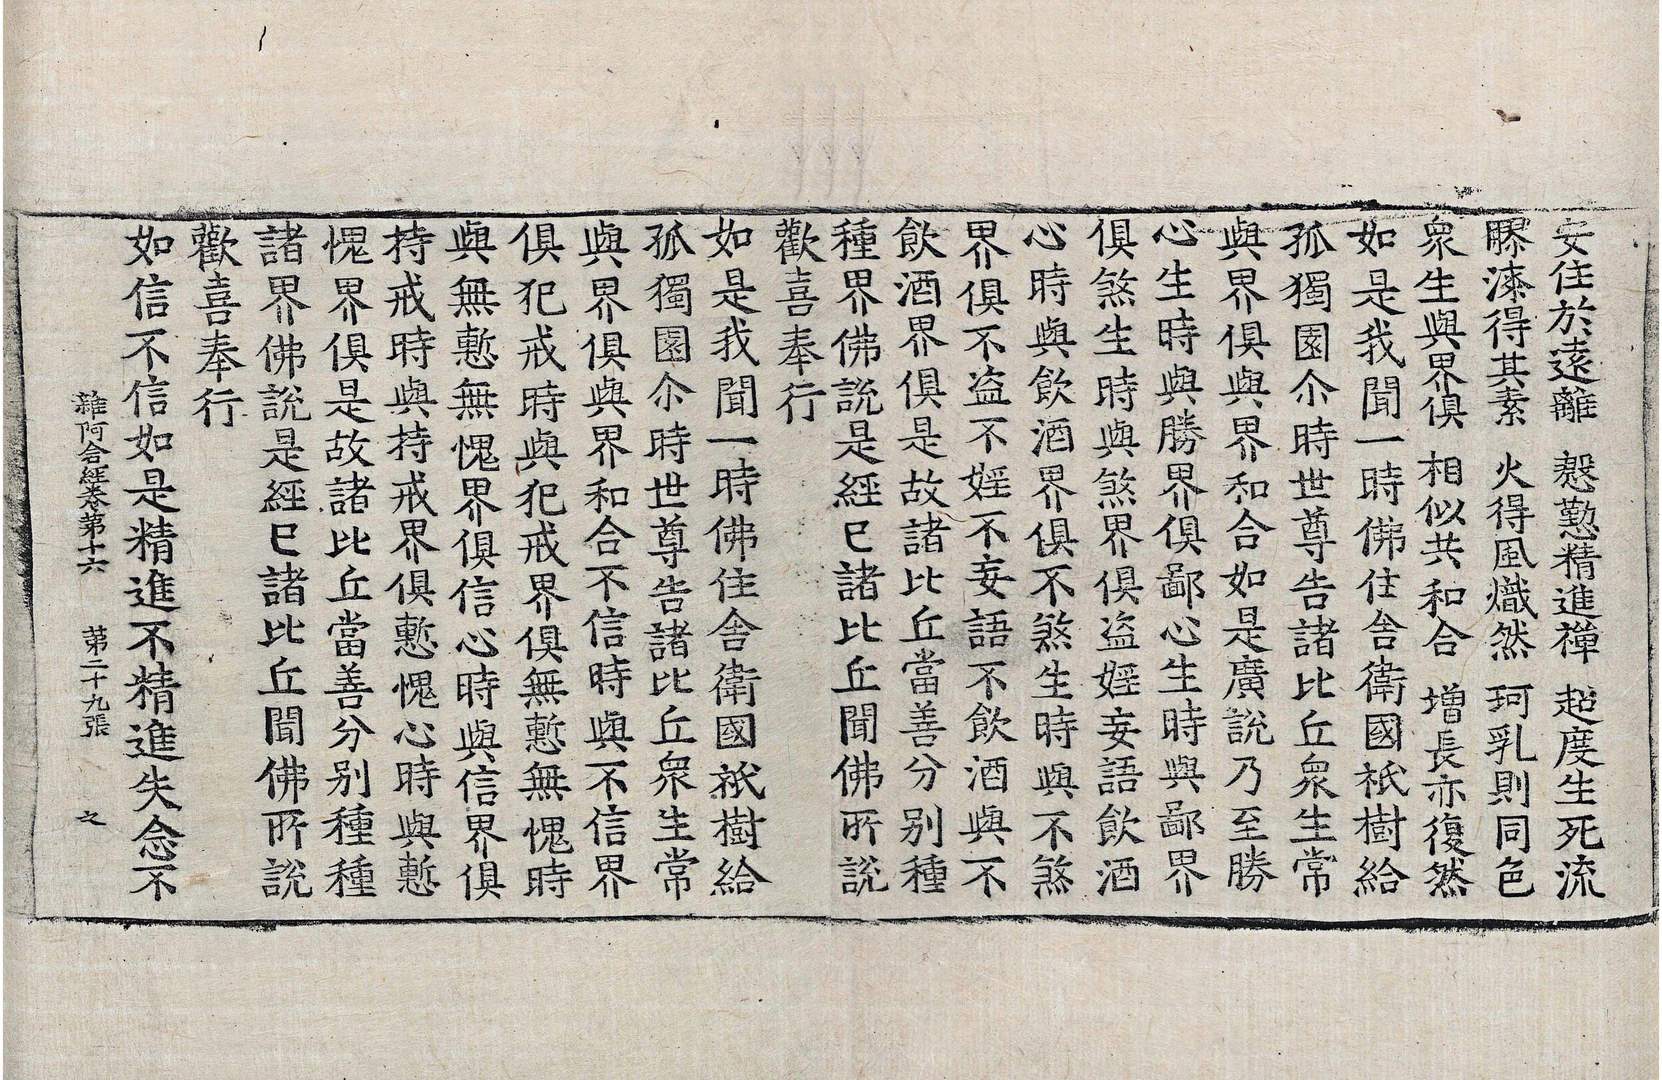 安住於遠離　慇懃精進禪　超度生死流
膠漆得其素　火得風熾然　珂乳則同色
衆生與界俱　相似共和合　增長亦復然
如是我聞一時佛住舍衛國祇樹給
孤獨園尒時世尊告諸比丘衆生常
與界俱與界和合如是廣說乃至勝
心生時與勝界俱鄙心生時與鄙界
俱煞生時與煞界俱盜婬妄語飲酒
心時與飲酒界俱不煞生時與不煞
界俱不盜不婬不妄語不飲酒與不
飲酒界俱是故諸比丘當善分別種
種界佛說是經已諸比丘聞佛所說
歡喜奉行
如是我聞一時佛住舍衛國祇樹給
孤獨園尒時世尊告諸比丘衆生常
與界俱與界和合不信時與不信界
俱犯戒時與犯戒界俱無慙無愧時
與無慙無愧界俱信心時與信界俱
持戒時與持戒界俱慙愧心時與慙
愧界俱是故諸比丘當善分別種種
諸界佛說是經已諸比丘聞佛所說
歡喜奉行
如信不信如是精進不精進失念不
雜阿含經卷第十六　第二十九張　之